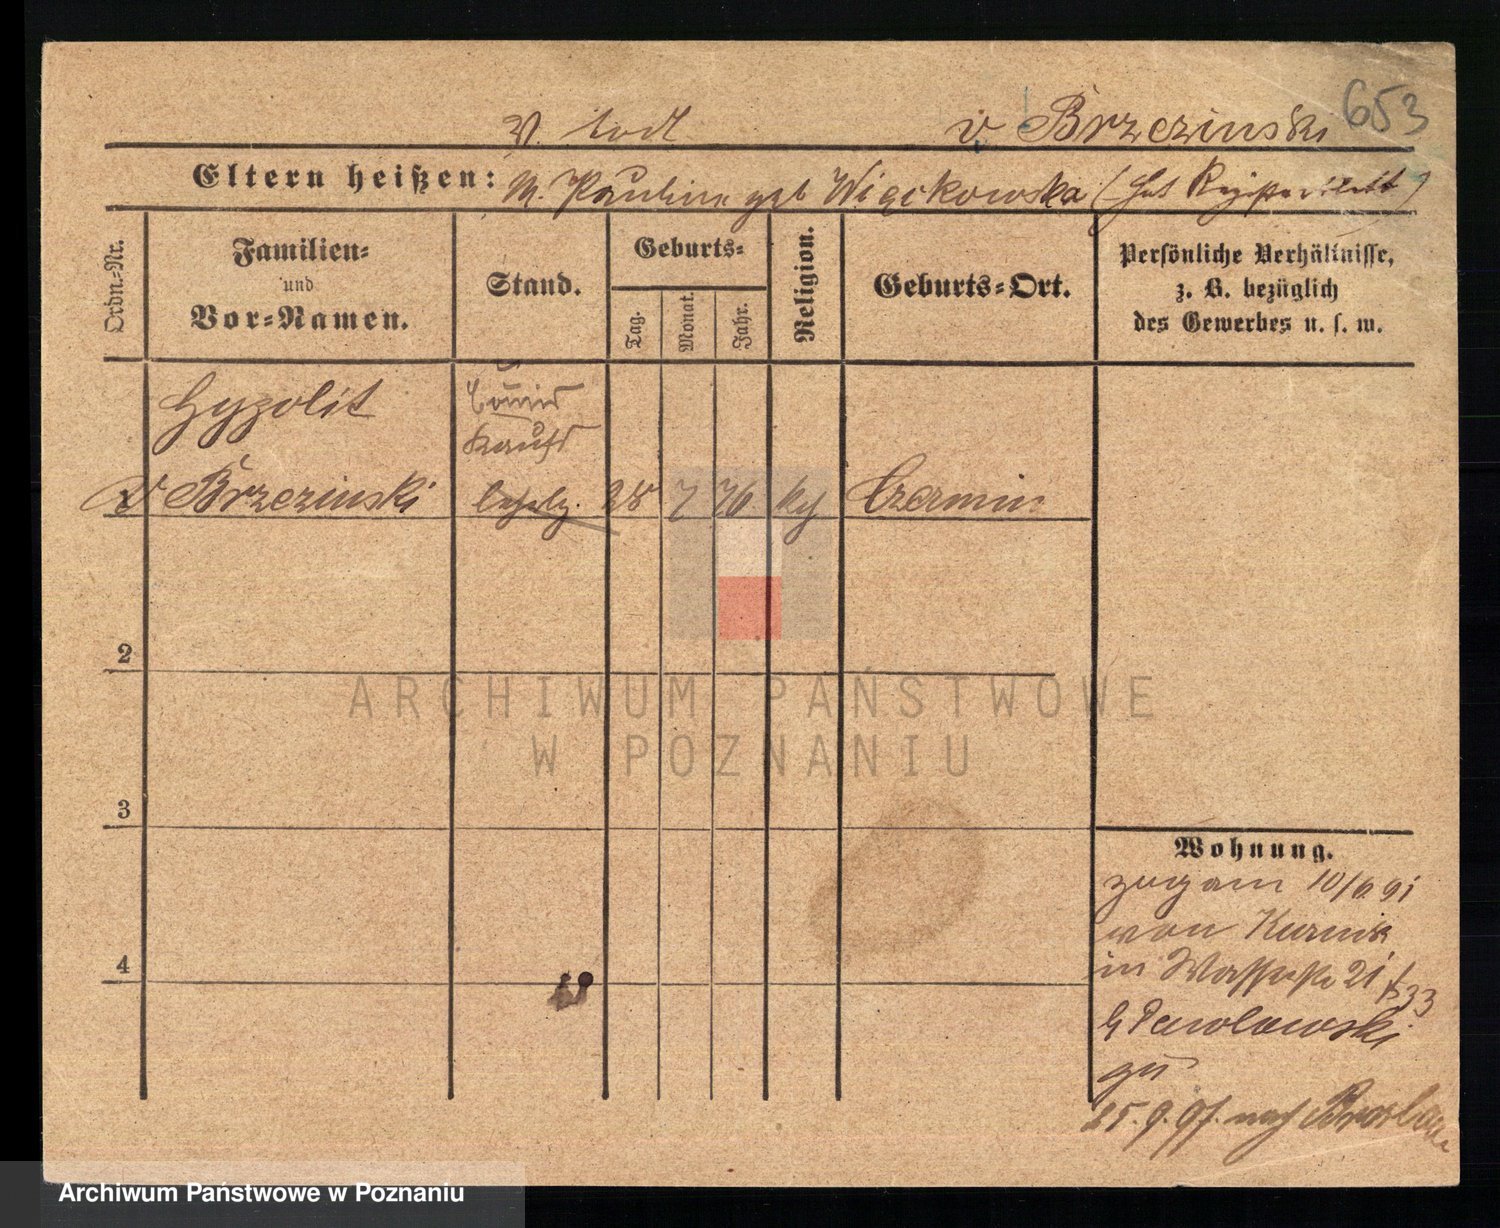 653
V. todt v Brzezinski
Eltern heißen: M. Pauline geb Więckowska
Ordn.=Nr.
Familien=
und
Vor=Namen.
Stand.
Geburts=
Tag.
Monat.
Jahr.
Religion.
Geburts=Ort.
Persönliche Verhältnisse,
z. B. bezüglich
des Gewerbes u. s. w.
Hypolit
Kaufs
v Brzezinski 28 7 76 kth Czermin
2
3
4
Wohnung.
zugzam 10/6 91
von Kurnik
in Wasserstr 21
b Pawlowski
25.9.97. nach Breslau
ARCHIWUM PAŃSTWOWE
W POZNANIU
Archiwum Państwowe w Poznaniu